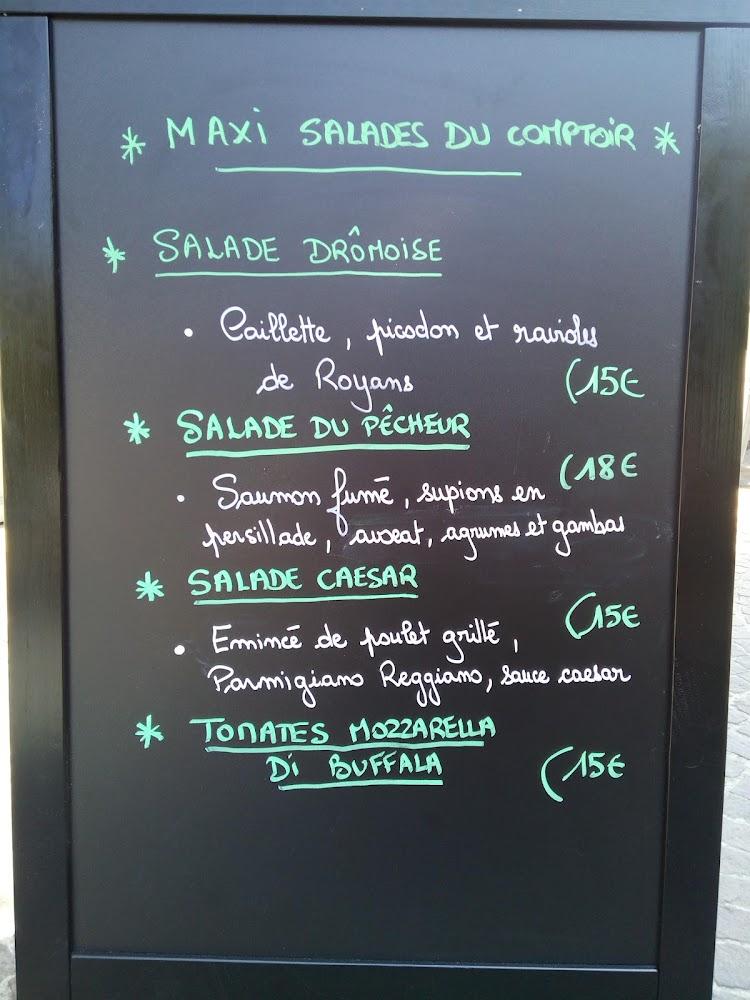 * MAXi SALADES DU COMPTOiR *
* SALADE DRÔMOISE
• Caillette, picodon et ravioles
de Royans (15€
* SALADE DU PÊCHEUR
(18€
• Saumon fumé, supions en
persillade, avocat, agrumes et gambas
* SALADE CAESAR
(15€
• Emincé de poulet grillé,
Parmigiano Reggiano, sauce caesar
* TOMATES MOZZARELLA
Di BUFFALA (15€